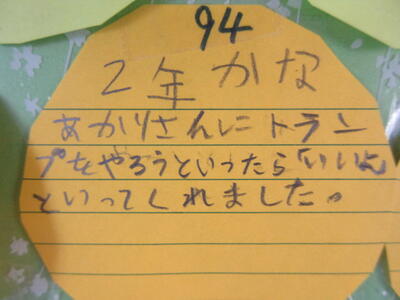 94
2年 かな
あかりさんにトラン
プをやろうといったら「いいよ
といってくれました。